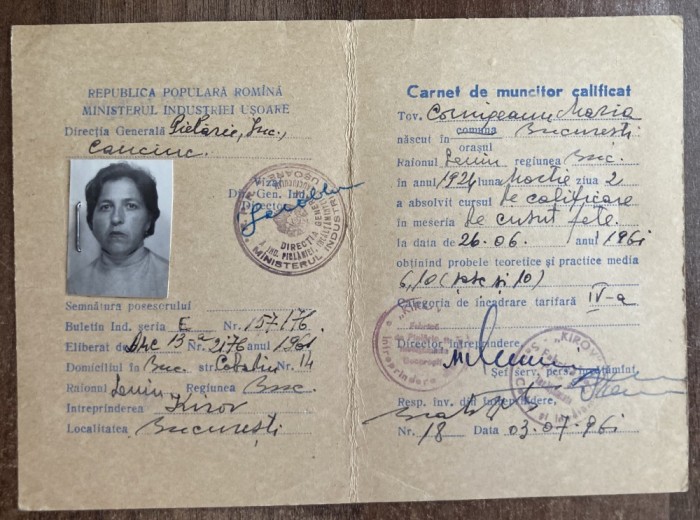 REPUBLICA POPULARĂ ROMÎNĂ
MINISTERUL INDUSTRIEI UȘOARE
Direcția Generală Pielărie, Inc.,
Cauciuc.
Viza
Dir. Gen. Ind.
Director
MINISTERUL INDUSTRIEI UȘOARE
DIRECȚIA GENERALĂ
IND. PIELĂRIEI, ÎNCĂLȚĂMINTEI
Semnătura posesorului
Buletin Ind. seria E Nr. 157176
Eliberat de Nr. 2176 anul 1961
Domiciliul în Buc. str. Nr. 14
Raionul Lenin Regiunea Buc.
Întreprinderea Kirov
Localitatea București
Carnet de muncitor calificat
Tov. Maria
născut în comuna București
orașul
Raionul Lenin regiunea Buc.
în anul 1924 luna Martie ziua 2
a absolvit cursul de calificare
în meseria de cusut fețe
în data de 26.06. anul 1961
obținînd probele teoretice și practice media
6,10 (șase și 10)
Categoria de încadrare tarifară IV-a
Director întreprindere,
Șef serv. pers. învățămînt,
Resp. înv. din întreprindere,
Nr. 18 Data 03.07.961
"KIROV"
Întreprinderea
"KIROV"